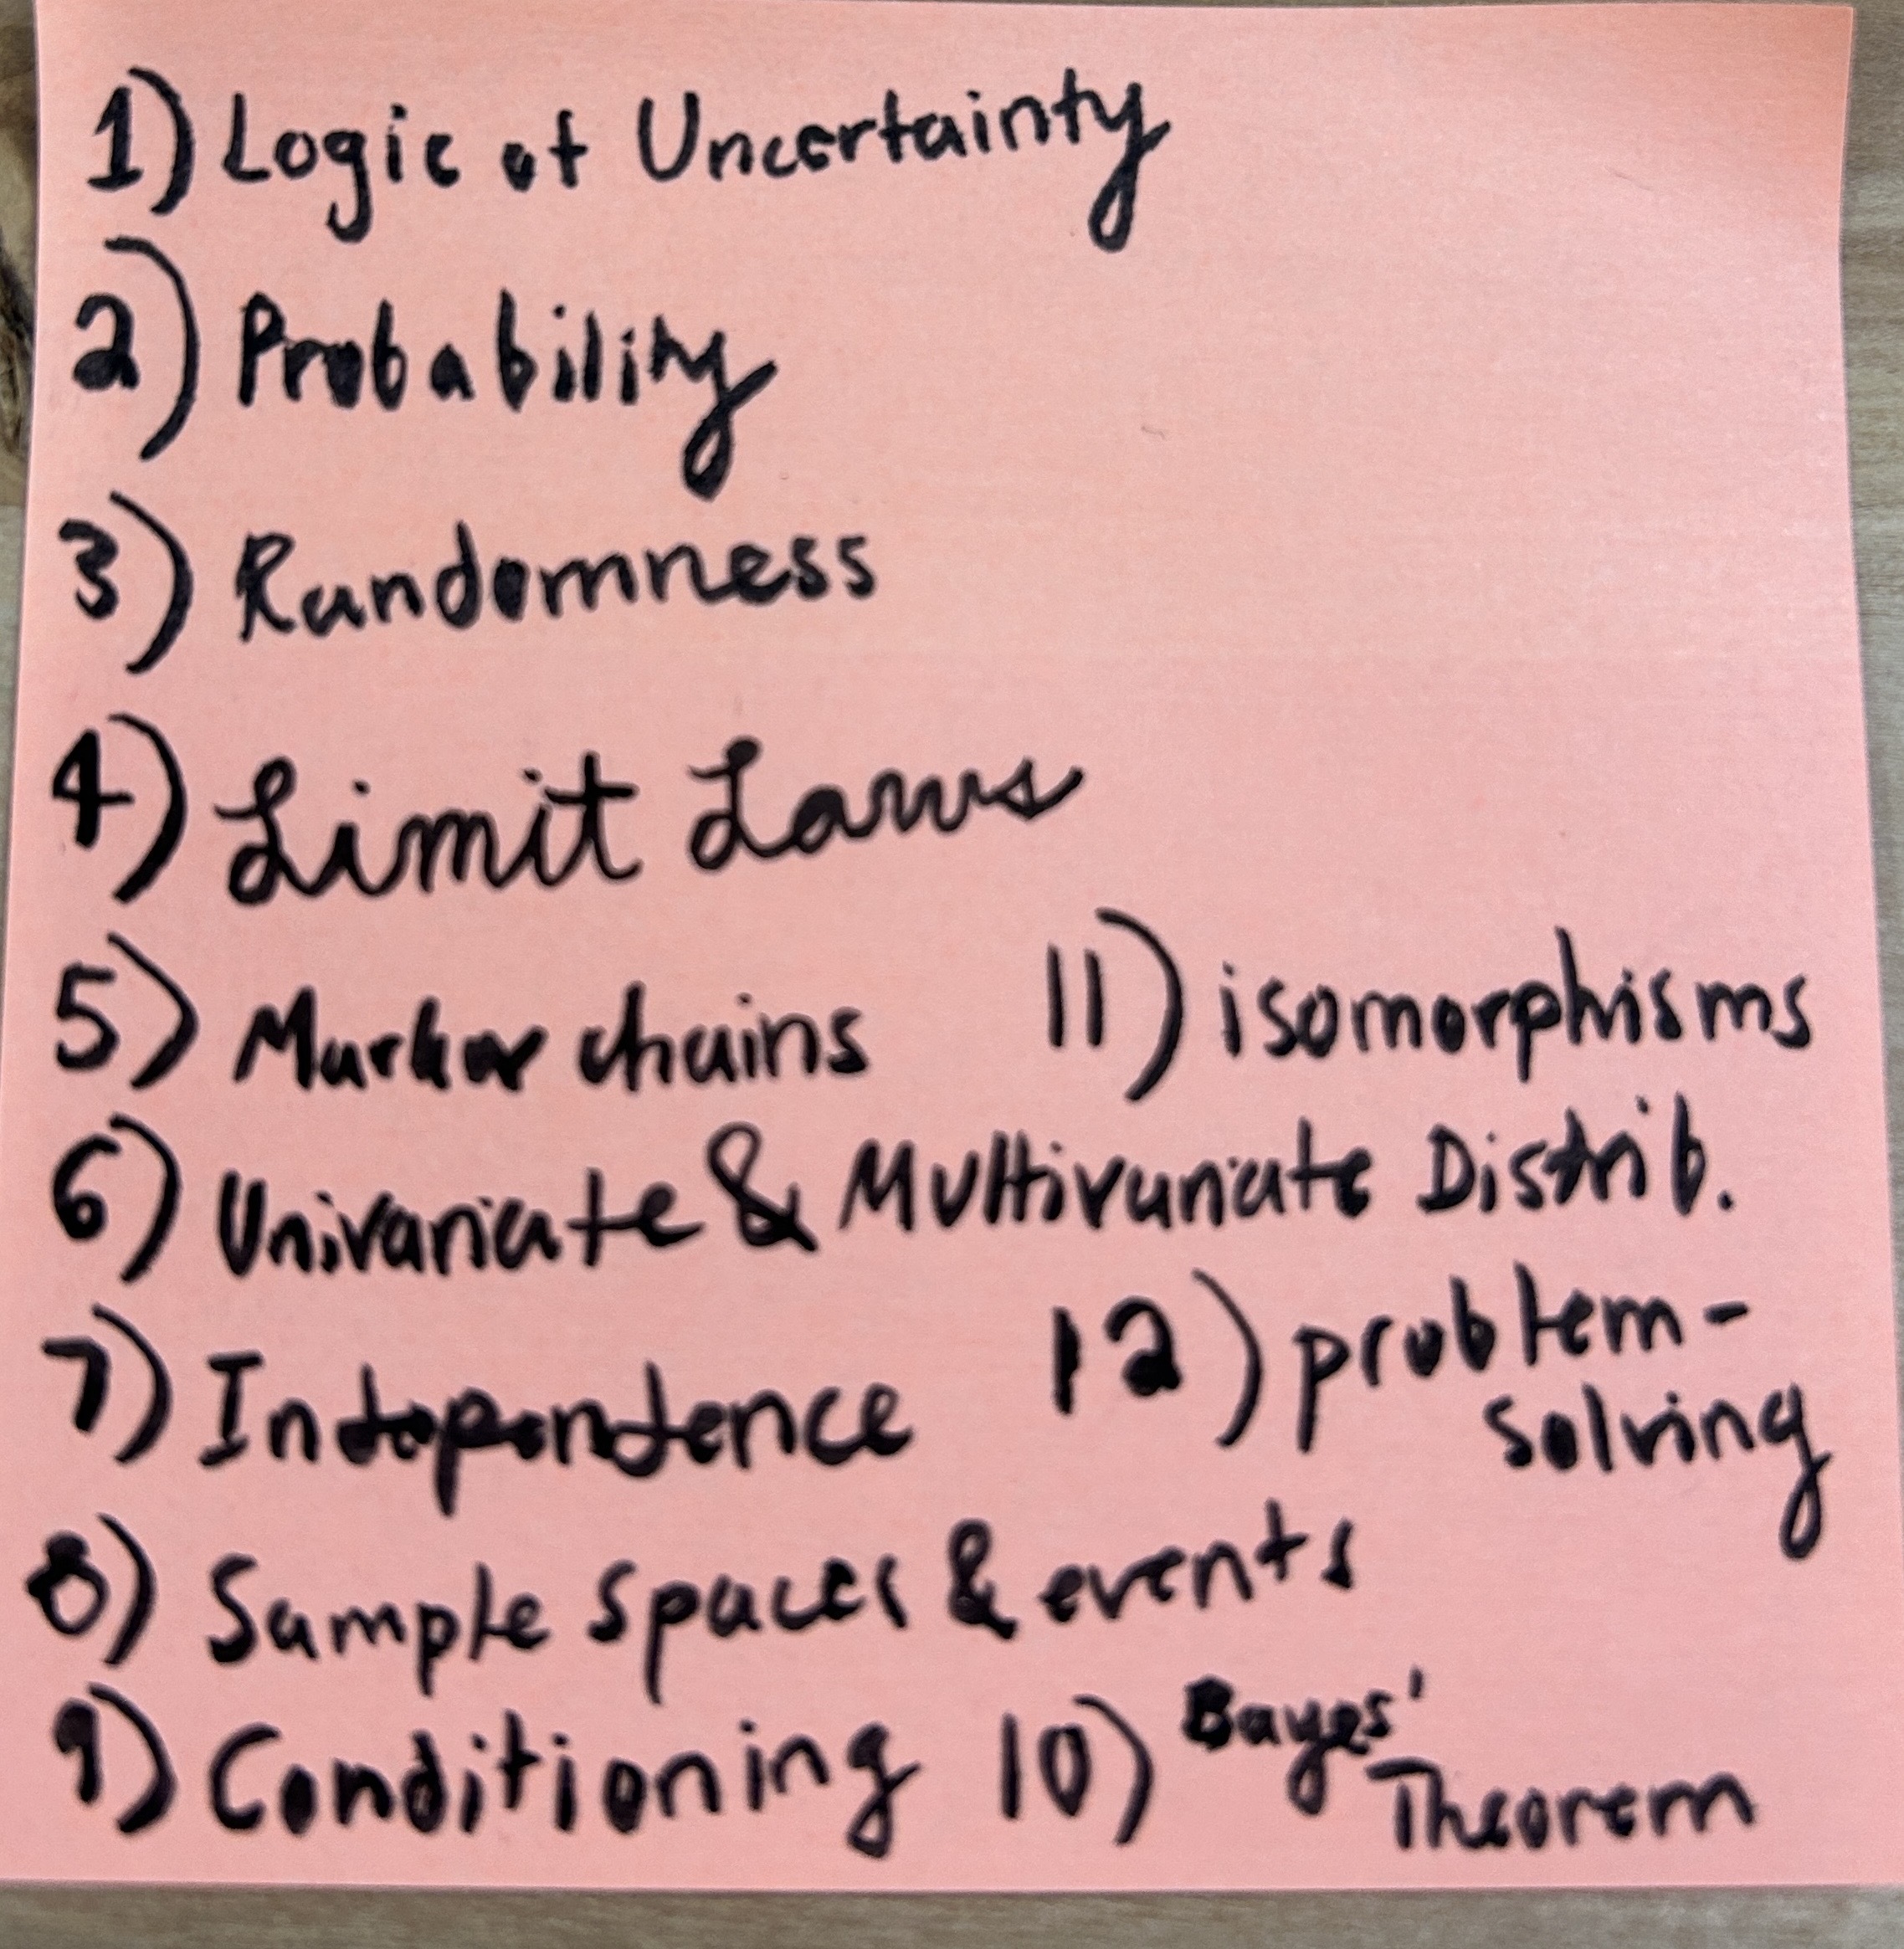 1) Logic of Uncertainty
2) Probability
3) Randomness
4) Limit Laws
5) Markov chains
11) isomorphisms
6) Univariate & Multivariate Distrib.
7) Independence
12) problem-
solving
8) Sample spaces & events
9) Conditioning
10) Bayes'
Theorem